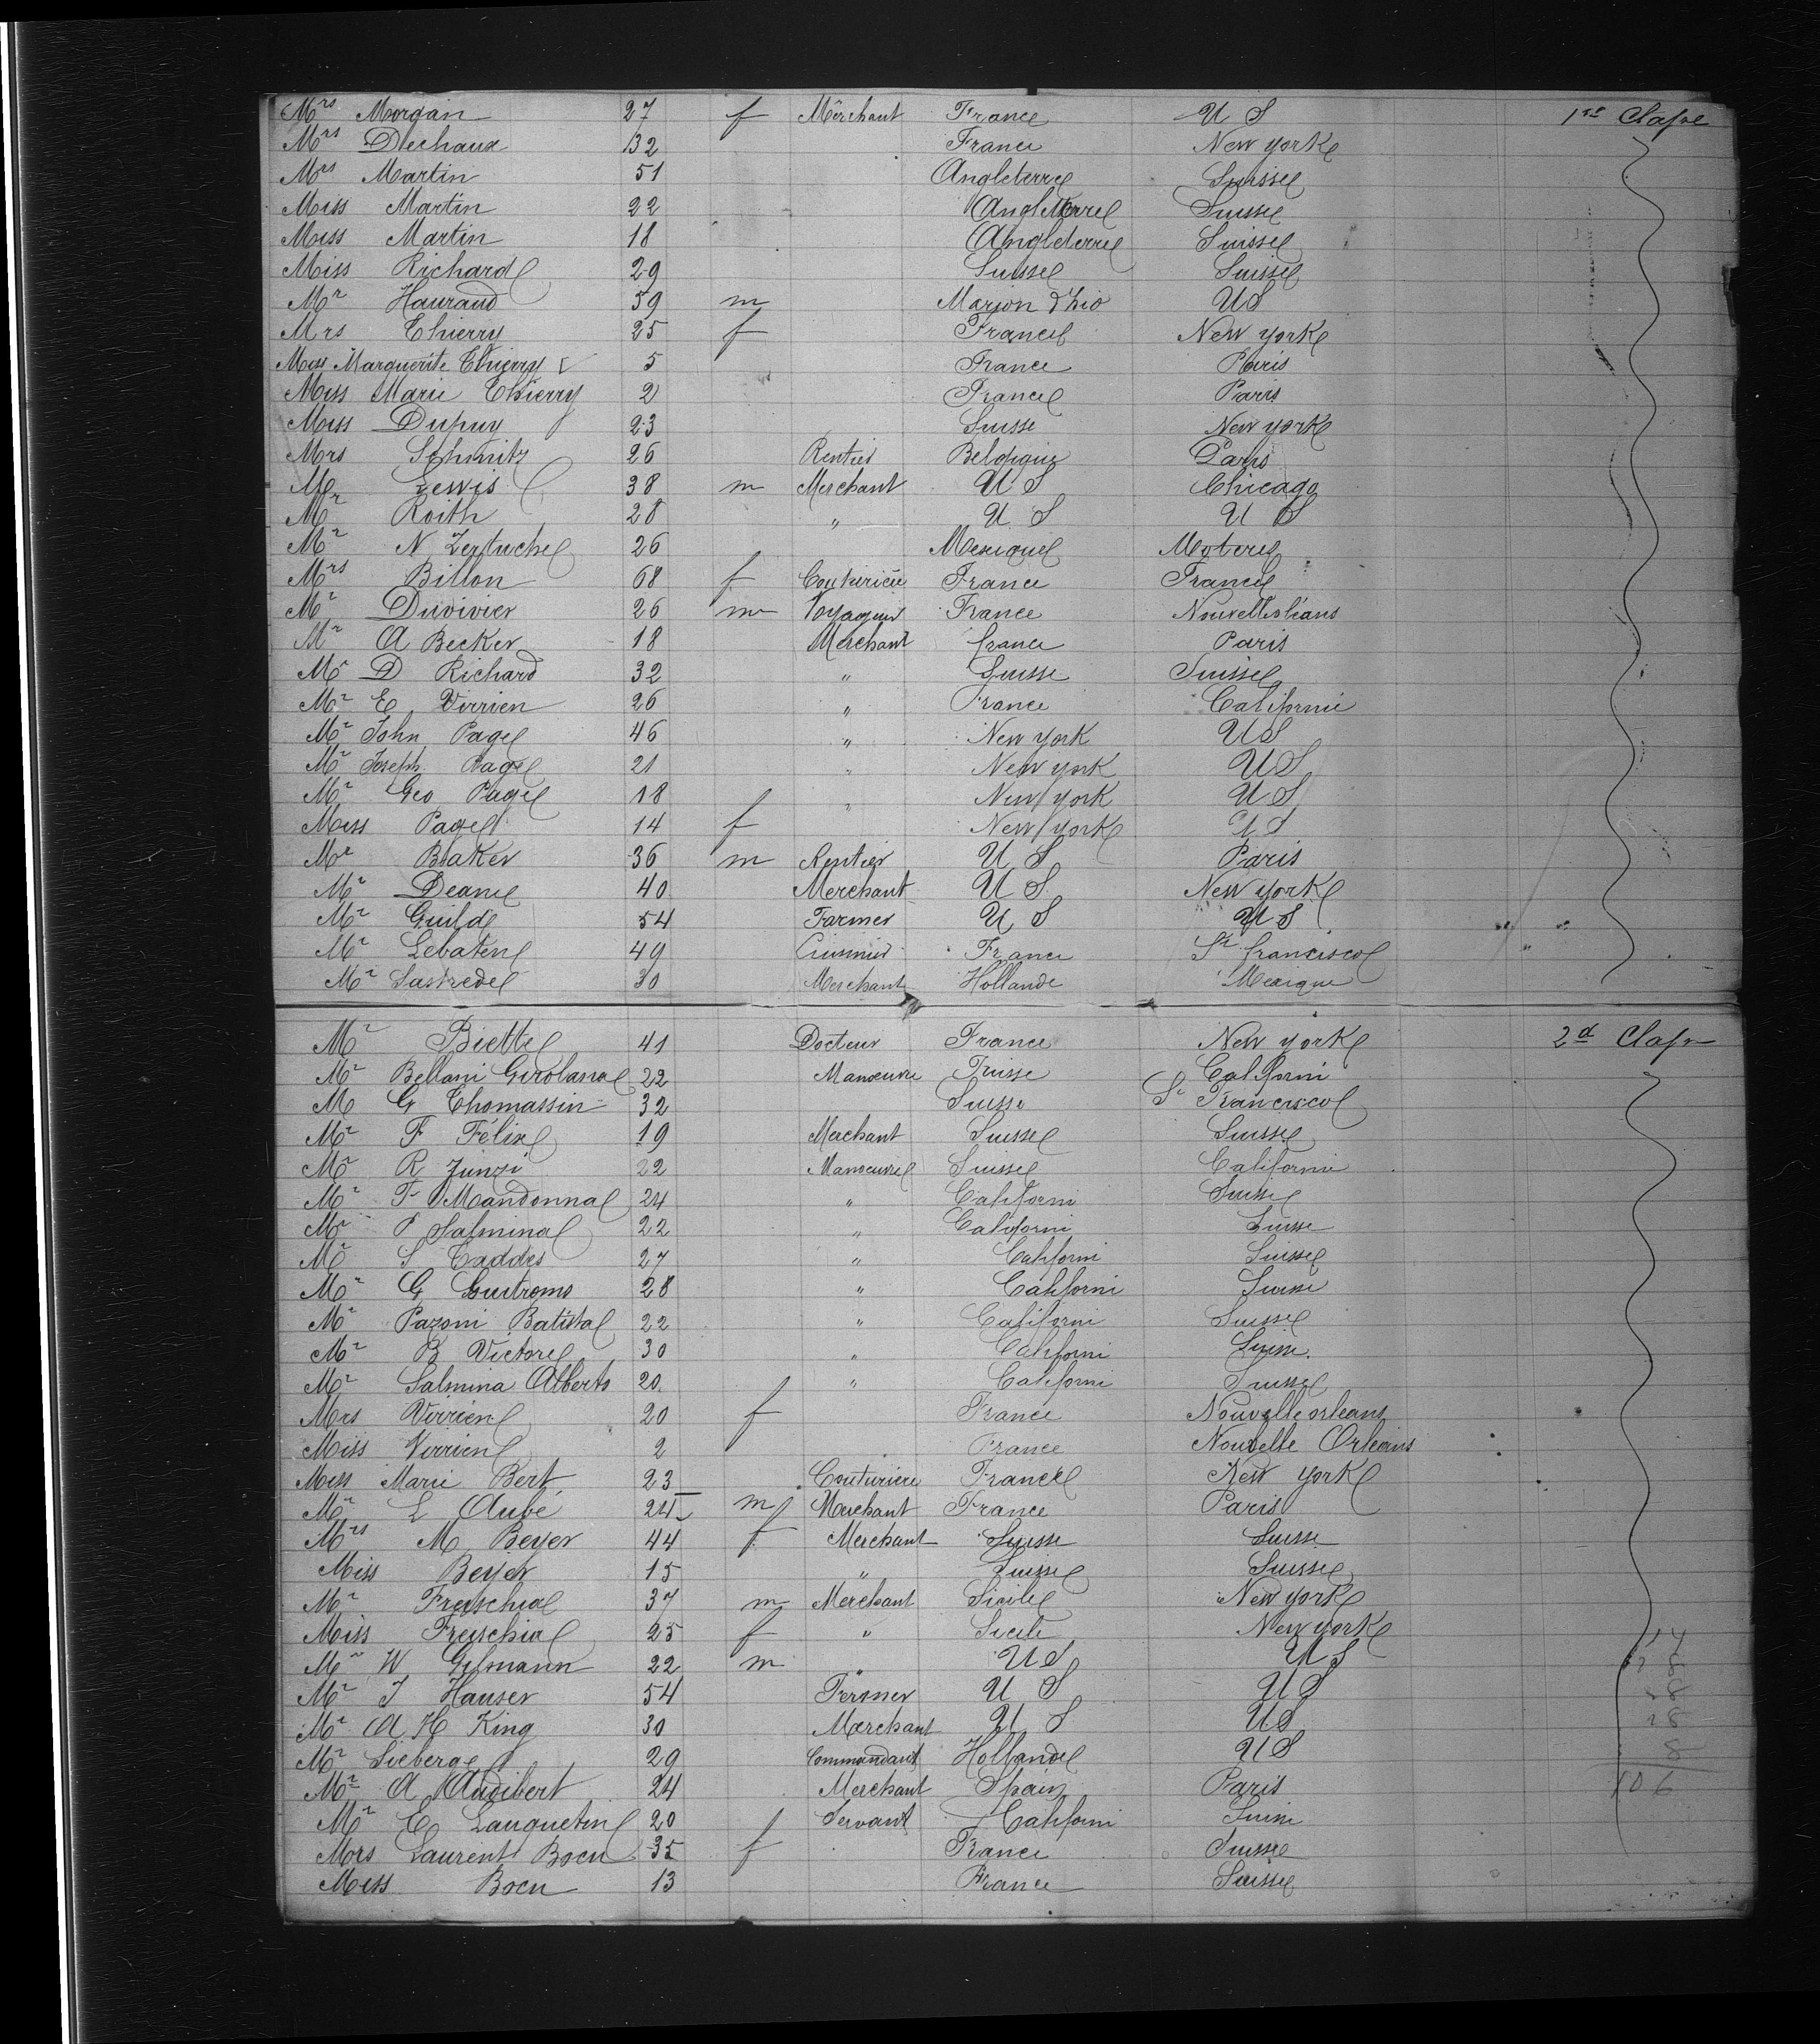 Mrs Morgan 27 f Merchant France U S 1re Classe
Mrs Dechaux 32 France New York
Mrs Martin 51 Angleterre Suisse
Miss Martin 22 Angleterre Suisse
Miss Martin 18 Angleterre Suisse
Miss Richard 29 Suisse Suisse
Mr Hauraud 59 m Marion Ohio U S
Mrs Thierry 25 f France New York
Miss Marguerite Thierry 5 France Paris
Miss Marie Thierry 2 France Paris
Miss Dupuy 23 Suisse New York
Mrs Schmitz 26 Rentier Belgique Paris
Mr Lewis 38 m Merchant U S Chicago
Mr Roith 28 " U S U S
Mr N Zertuche 26 Mexique
Mrs Billon 68 f Couturière France France
Mr Duvivier 26 m Voyageur France Nouvelle orléans
Mr A Becker 18 Merchant france Paris
Mr D Richard 32 " Suisse Suisse
Mr E Virrien 26 " France Californie
Mr John Page 46 " New York U S
Mr Joseph Page 21 " New York U S
Mr Geo Page 18 " New York U S
Miss Page 14 f New York U S
Mr Baker 36 m Rentier U S Paris
Mr Deane 40 Merchant U S New York
Mr Guilde 54 Farmer U S U S
Mr Lebaten 49 Cuisinier France St francisco
Mr Sastrede 30 Merchant Hollande Mexique
Mr Biette 41 Docteur France New York 2d Classe
Mr Bellani Girolana 22 Manoeuvre Suisse Californi
M G Thomassin 32 Suisse St Francisco
Mr F Félix 19 Merchant Suisse Suisse
Mr R Junzi 22 Manoeuvre Suisse Californi
Mr F Mandonna 24 " Californi Suisse
Mr P Salmina 22 " Californi Suisse
Mr S Taddes 27 " Californi Suisse
Mr G 28 " Californi Suisse
Mr Pazoni Batista 22 " Californi Suisse
Mr B Victore 30 " Californi Suisse
Mr Salmina Alberto 20 " Californi Suisse
Mrs Virrien 20 f France Nouvelle orleans
Miss Virrien 2 France Nouvelle Orleans
Miss Marie Bert 23 Couturiere France New York
Mr L Aubé 24 m Merchant France Paris
Mrs M Beyer 44 f Merchant Suisse Suisse
Miss Beyer 15 " Suisse Suisse
Mr Freischia 37 m Merchant Sicile New York
Miss Freischia 25 f " Sicile New York
Mr W Gefmann 22 m " U S U S
Mr J Hauser 54 Fermer U S U S
Mr A H King 30 Merchant U S U S
Mr Lieberge 29 Commandant Hollande U S
Mr A Audibert 24 Merchant Spain Paris 106
Mr E Lauquetin 20 Servant Californi Suisse
Mrs Laurent Bocu 35 f France Suisse
Miss Bocu 13 France Suisse